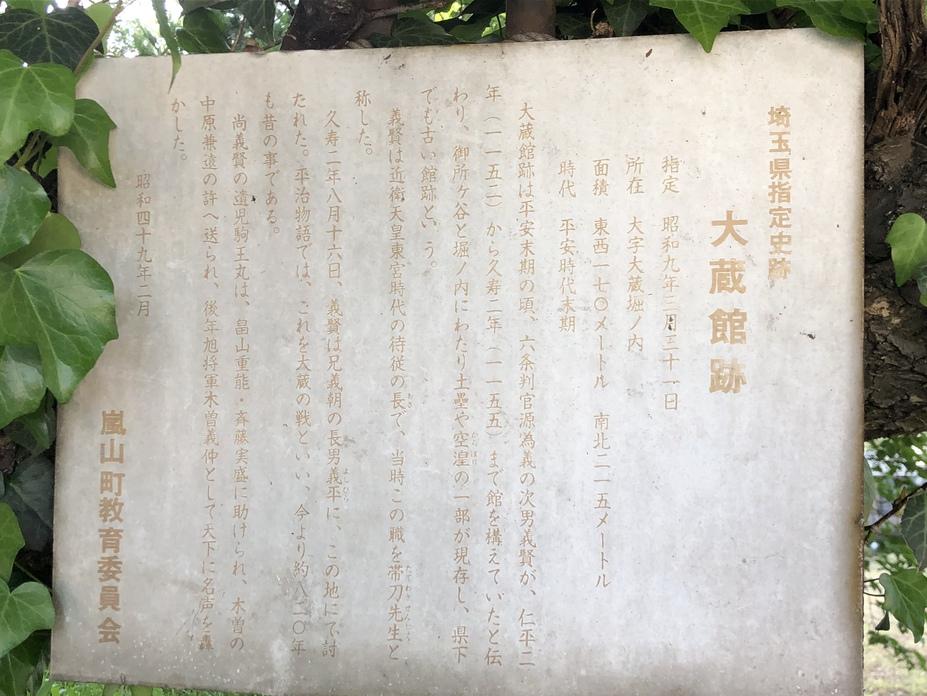 埼玉県指定史跡
大蔵館跡
指定　昭和九年三月三十一日
所在　大字大蔵堀ノ内
面積　東西一七〇メートル　南北二一五メートル
時代　平安時代末期
大蔵館跡は平安末期の頃、六条判官源為義の次男義賢が、仁平二
年（一一五二）から久寿二年（一一五五）まで館を構えていたと伝
わり、御所ケ谷と堀ノ内にわたり土塁や空湟の一部が現存し、県下
でも古い館跡という。
義賢は近衛天皇東宮時代の待従の長で、当時この職を帯刀先生と
称した。
久寿二年八月十六日、義賢は兄義朝の長男義平に、この地にて討
たれた。平治物語では、これを大蔵の戦といい、今より約八二〇年
も昔の事である。
尚義賢の遺児駒王丸は、畠山重能・斉藤実盛に助けられ、木曽の
中原兼遠の許へ送られ、後年旭将軍木曽義仲として天下に名声を轟
かした。
昭和四十九年二月
嵐山町教育委員会